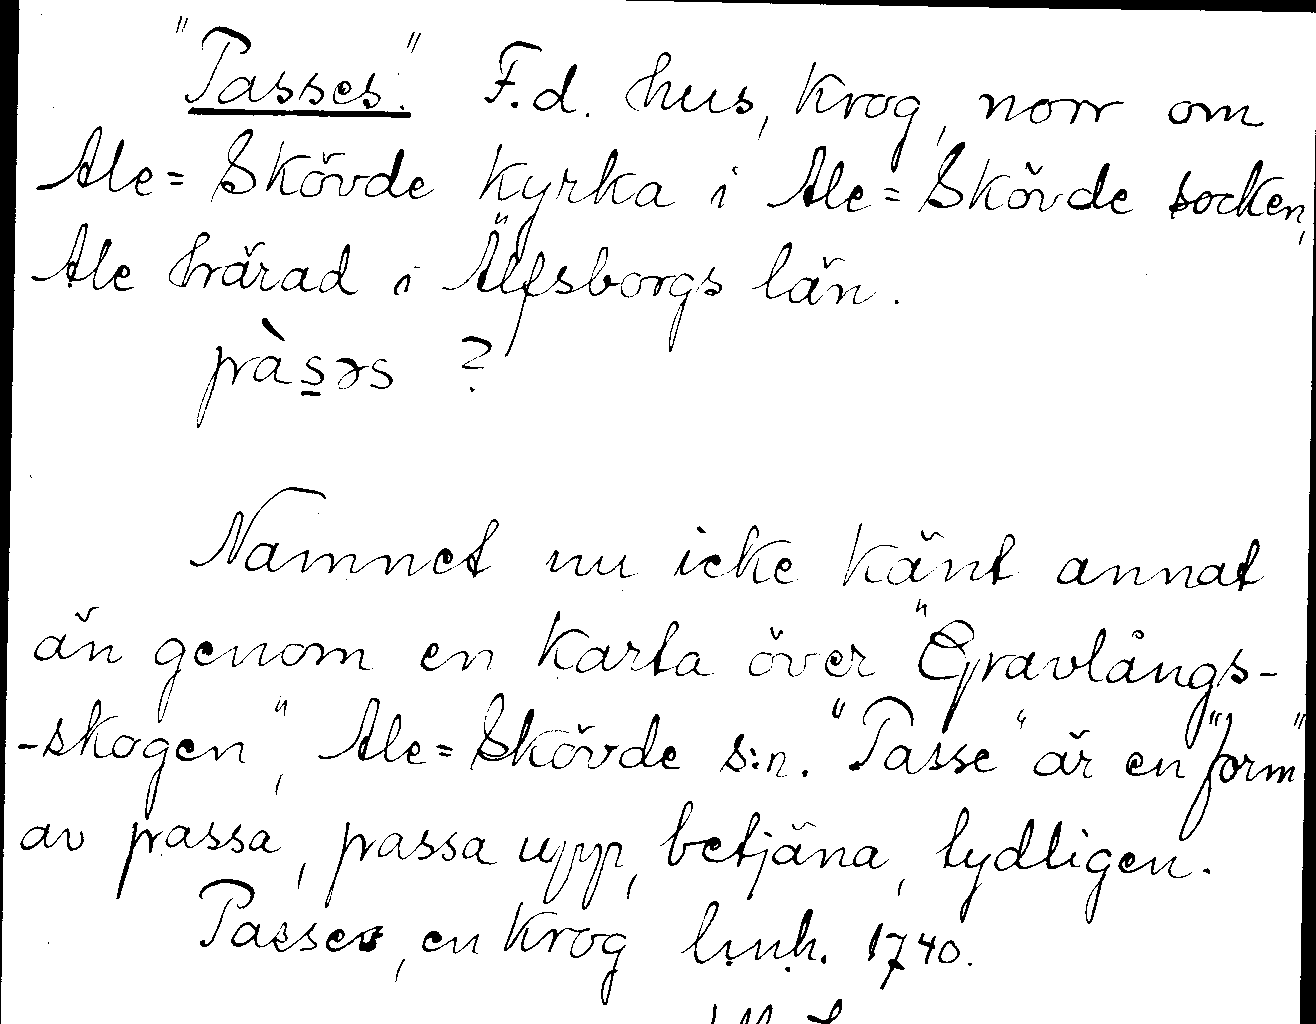 "Passes." F.d. hus, krog, norr om
Ale=Skövde kyrka i Ale=Skövde socken,
Ale härad i Älfsborgs län.
pàs̲əs ?
Namnet nu icke känt annat
än genom en karta över "Gravlångs-
-skogen", Ale=Skövde s:n. "Passe" är en "form"
av passa, passa upp, betjäna, tydligen.
Passes, en krog l.m.h. 1740.